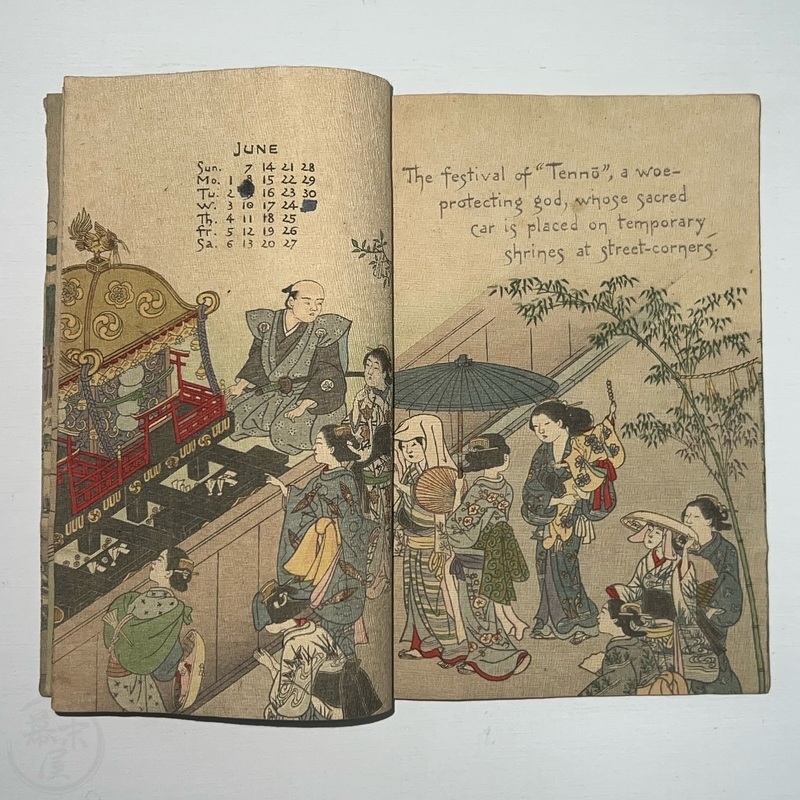 JUNE
Sun. 7 14 21 28
Mo. 1 8 15 22 29
Tu. 2 16 23 30
W. 3 10 17 24
Th. 4 11 18 25
Fr. 5 12 19 26
Sa. 6 13 20 27
The festival of “Tennō”, a woe-
protecting god, whose sacred
car is placed on temporary
shrines at street-corners.
幕末屋